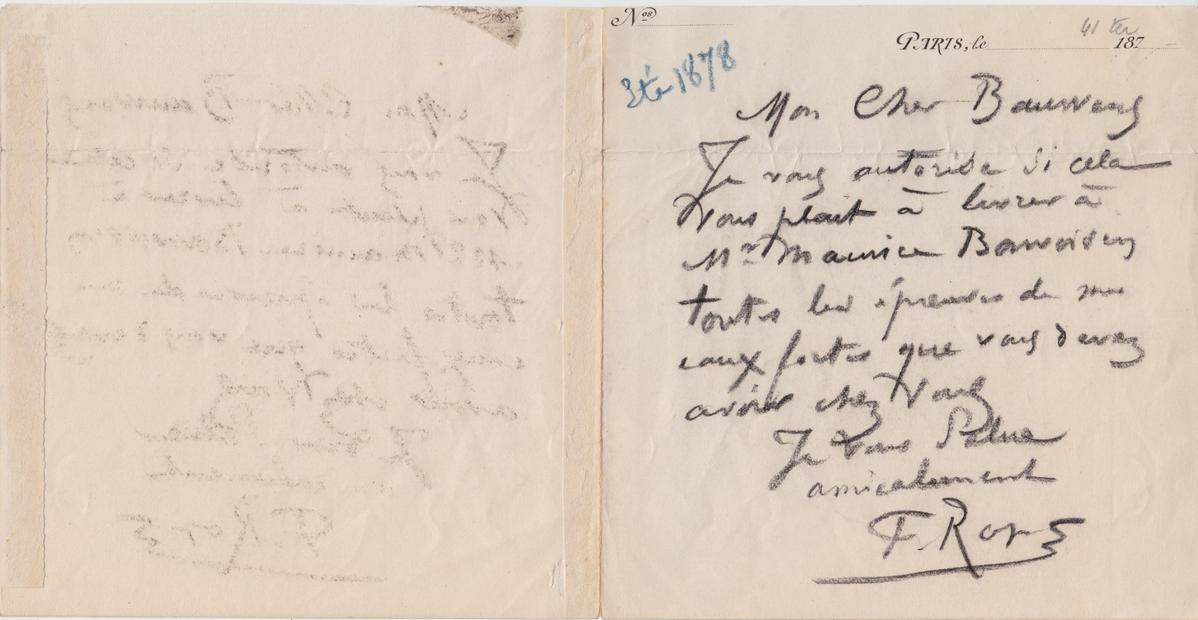 Nos
PARIS, le 187
41 ter
Eté 1878
Mon Cher Bauwens
Je vous autorise si cela
vous plait à livrer à
Mr Maurice Bonvoisin
toutes les épreuves de mes
eaux fortes que vous devez
avoir chez vous
Je vous Salue
amicalement
F. Rops